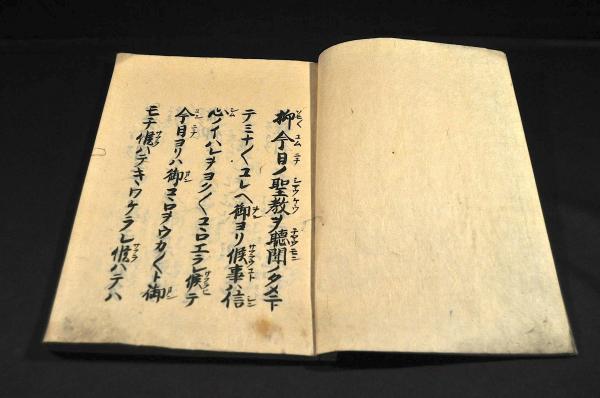 抑今日ノ聖教ヲ聴聞ノタメニト
テミナ〳〵コレヘ御ヨリ候事ハ信
心ノイハレヲヨク〳〵コヽロエラレ候テ
今日ヨリハ御コヽロヲウカ〳〵ト御
モチ候ハテキヽワケラレ候ハテハ